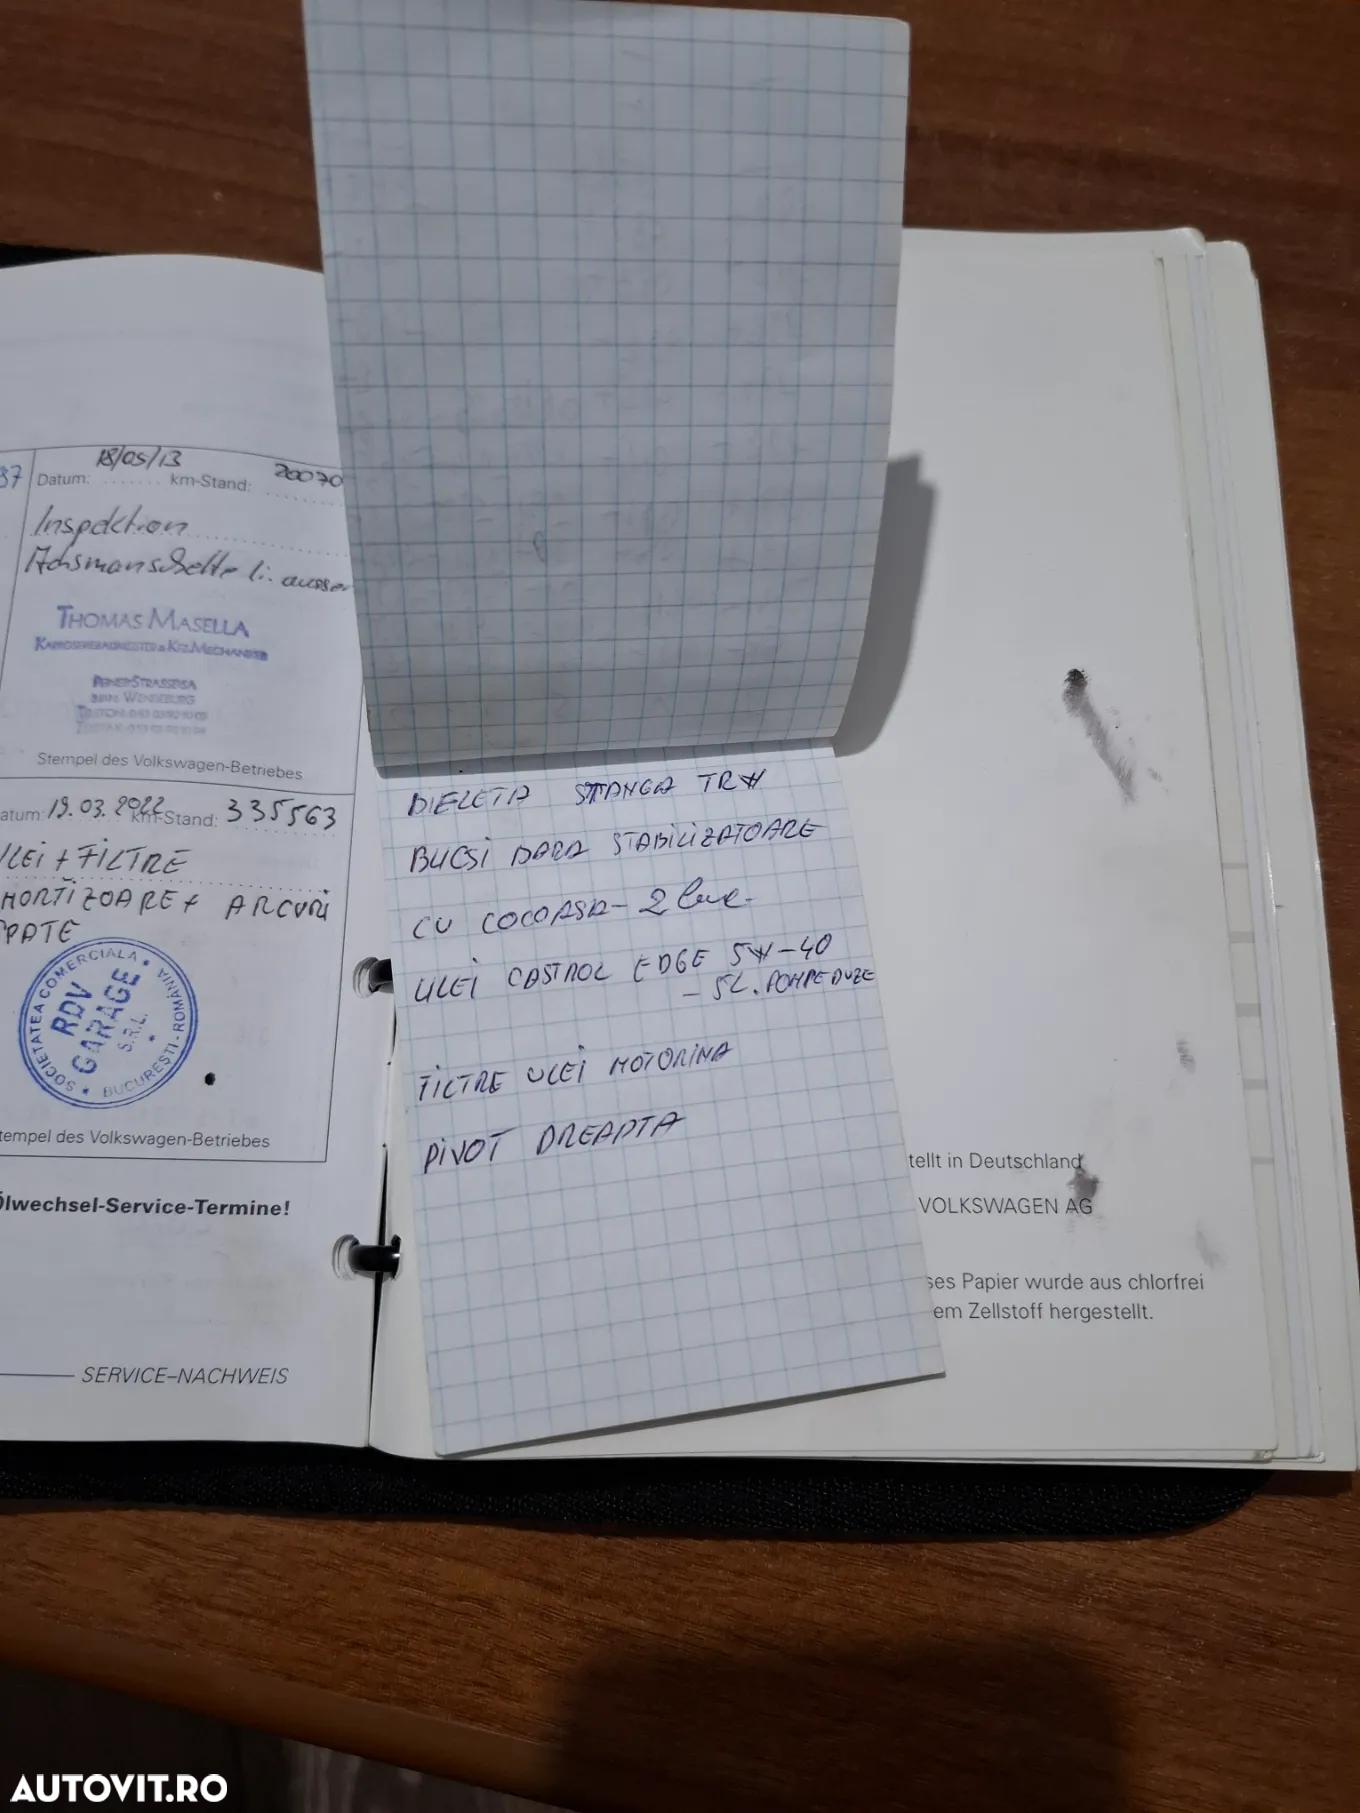 37
18/05/13
Datum: km-Stand: 20070
Inspektion
Achsmanschette li. ausser
THOMAS MASELLA
KAROSSERIEBAUMEISTER & KFZ.MECHANIKER
WENDEBURG
Stempel des Volkswagen-Betriebes
atum: 19.03.2022 km-Stand: 335563
LEI + FILTRE
MORTIZOARE + ARCURI
PATE
SOCIETATEA COMERCIALA
RDV
GARAGE
S.R.L.
BUCUREȘTI - ROMÂNIA
tempel des Volkswagen-Betriebes
Ölwechsel-Service-Termine!
SERVICE–NACHWEIS
BIELETA STANGA TRW
BUCSI BARA STABILIZATOARE
CU COCOASA - 2 buc.
ULEI CASTROL EDGE 5W-40
- 5L. POMPE DUZE
FILTRE ULEI MOTORINA
PIVOT DREAPTA
tellt in Deutschland
VOLKSWAGEN AG
ses Papier wurde aus chlorfrei
em Zellstoff hergestellt.
AUTOVIT.RO